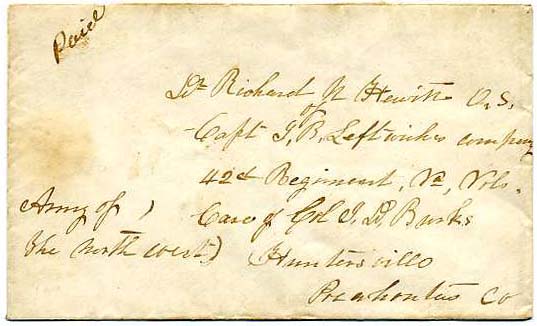 Paid
Dr Richard N Hewitt O.S.
of
Capt J, B, Leftwiches company
42d Regiment, Va, Vols.
Care of Col J. D. Burks
Huntersville
Pocahontus Co
Army of )
the north west)